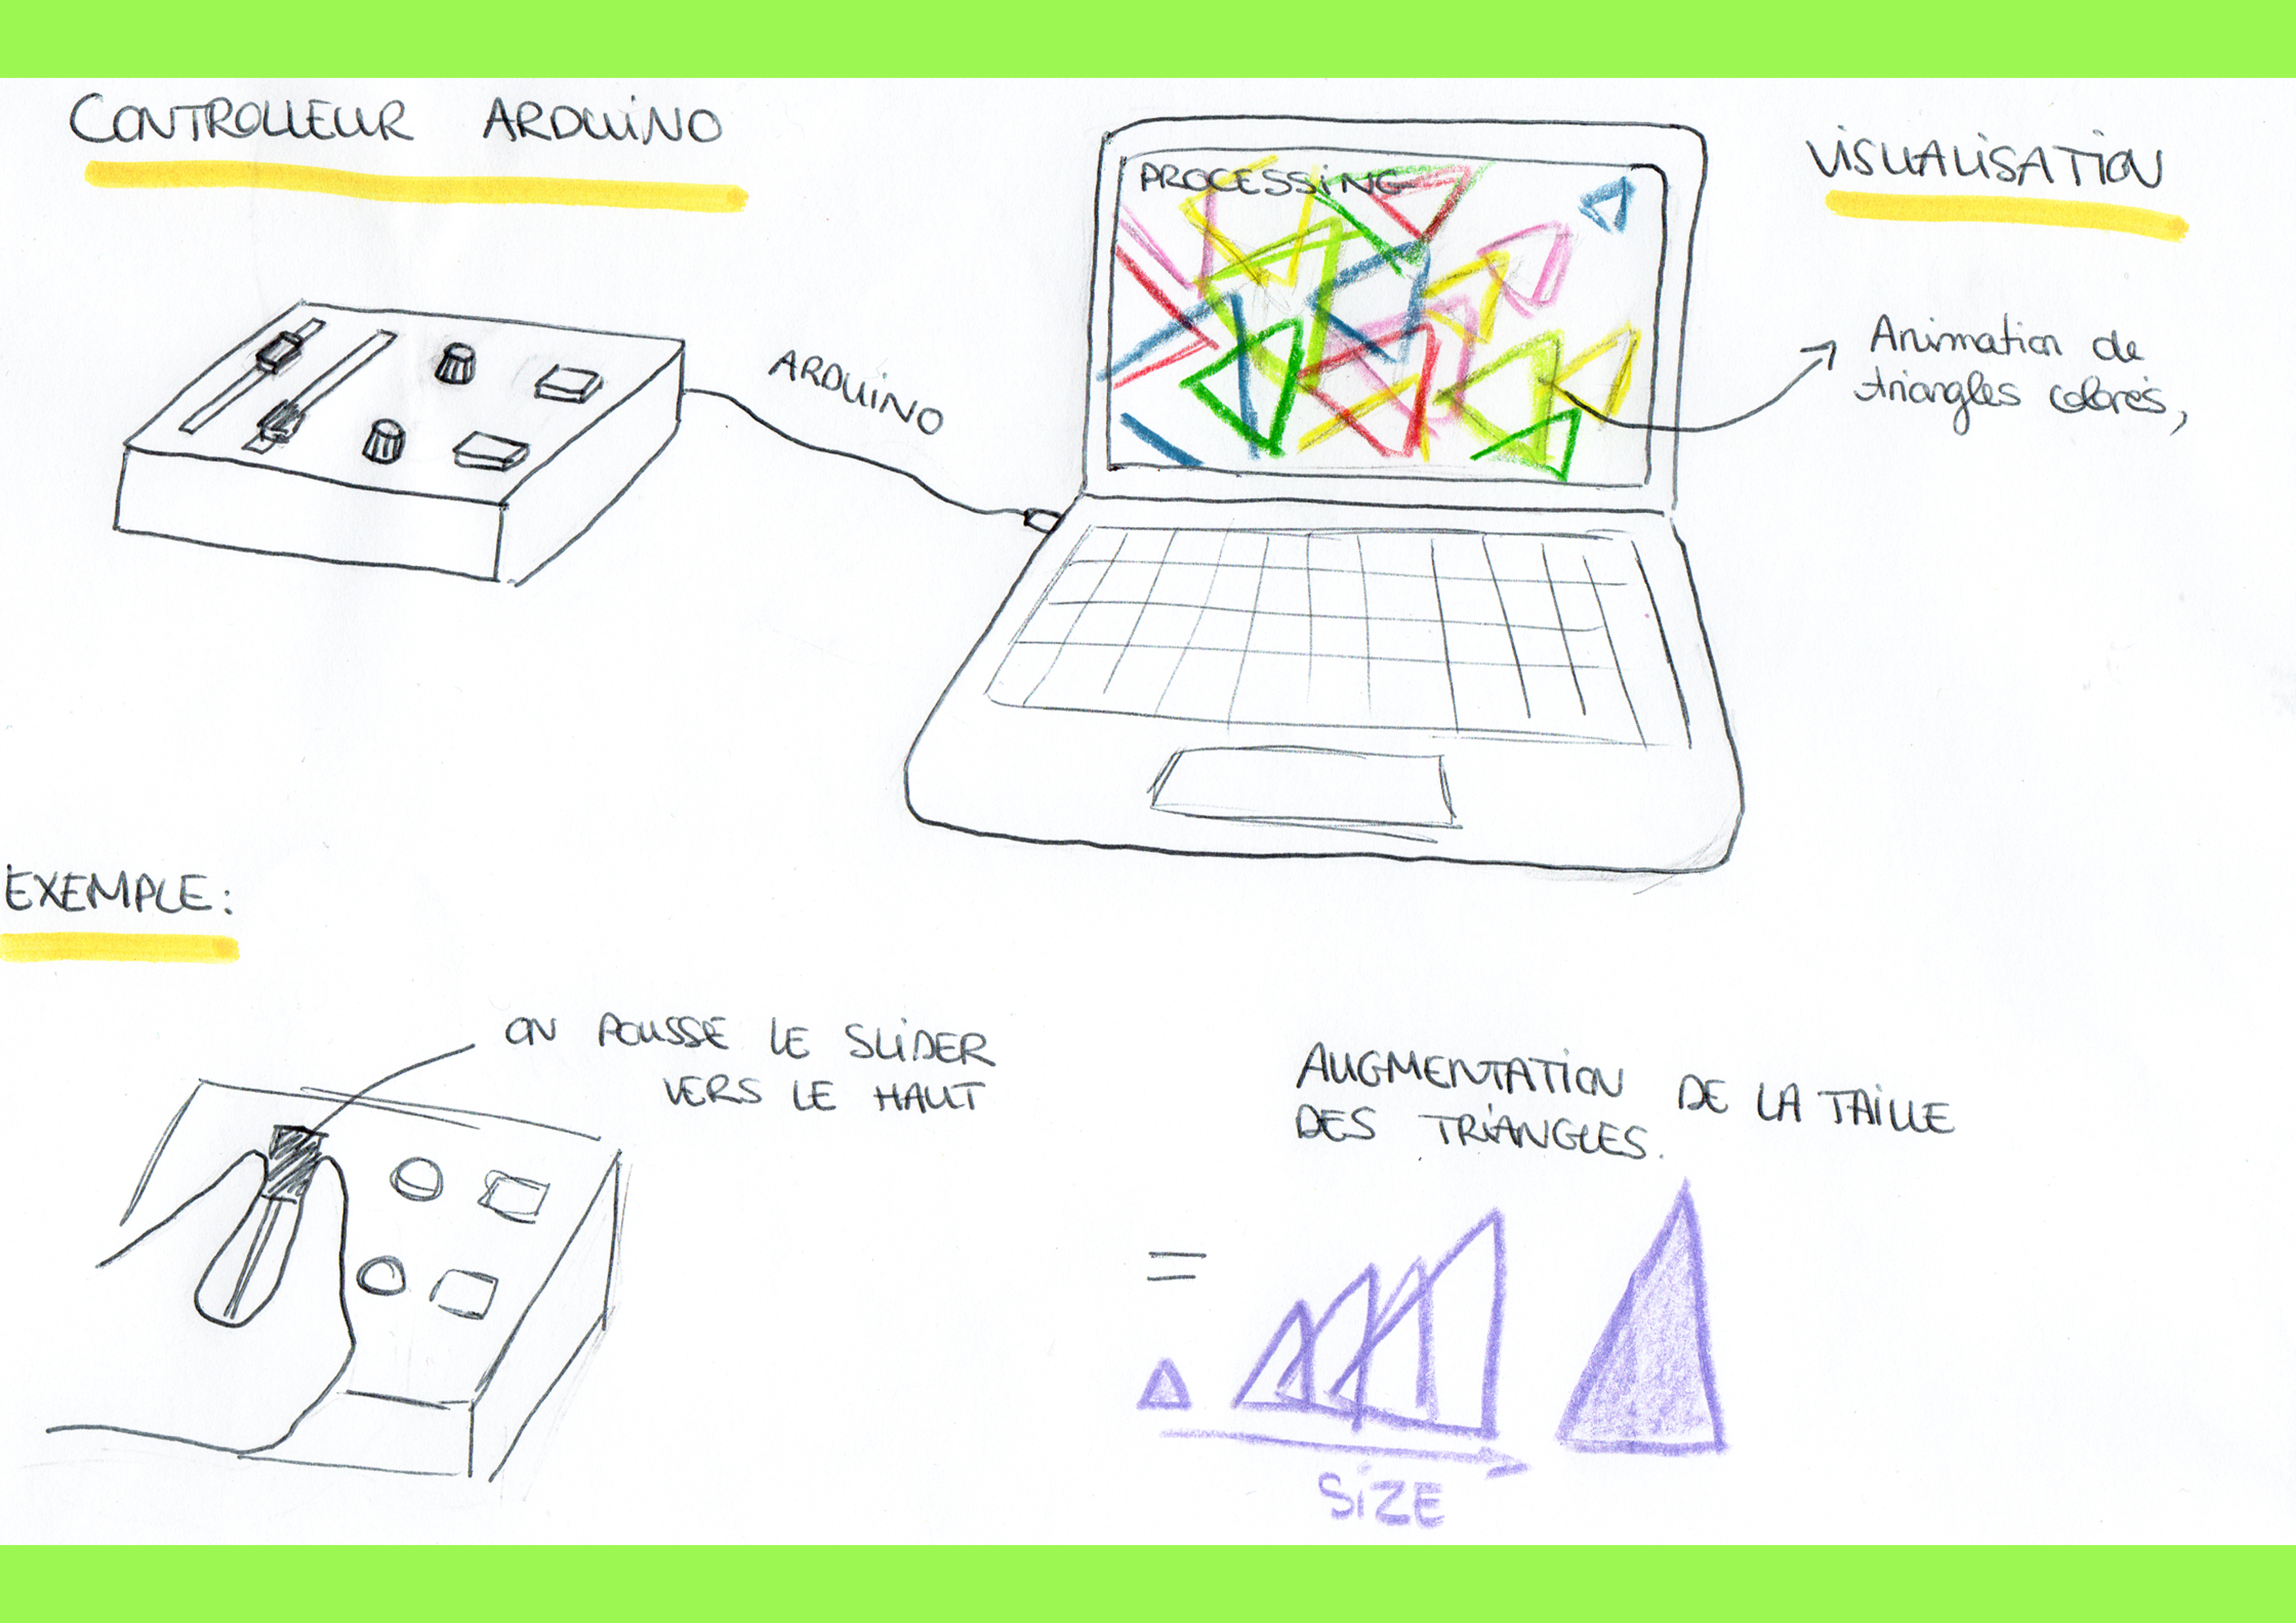 CONTROLLEUR ARDUINO
PROCESSING
VISUALISATION
ARDUINO
Animation de
triangles colorés,
EXEMPLE:
ON POUSSE LE SLIDER
VERS LE HAUT
AUGMENTATION DE LA TAILLE
DES TRIANGLES.
=
SIZE